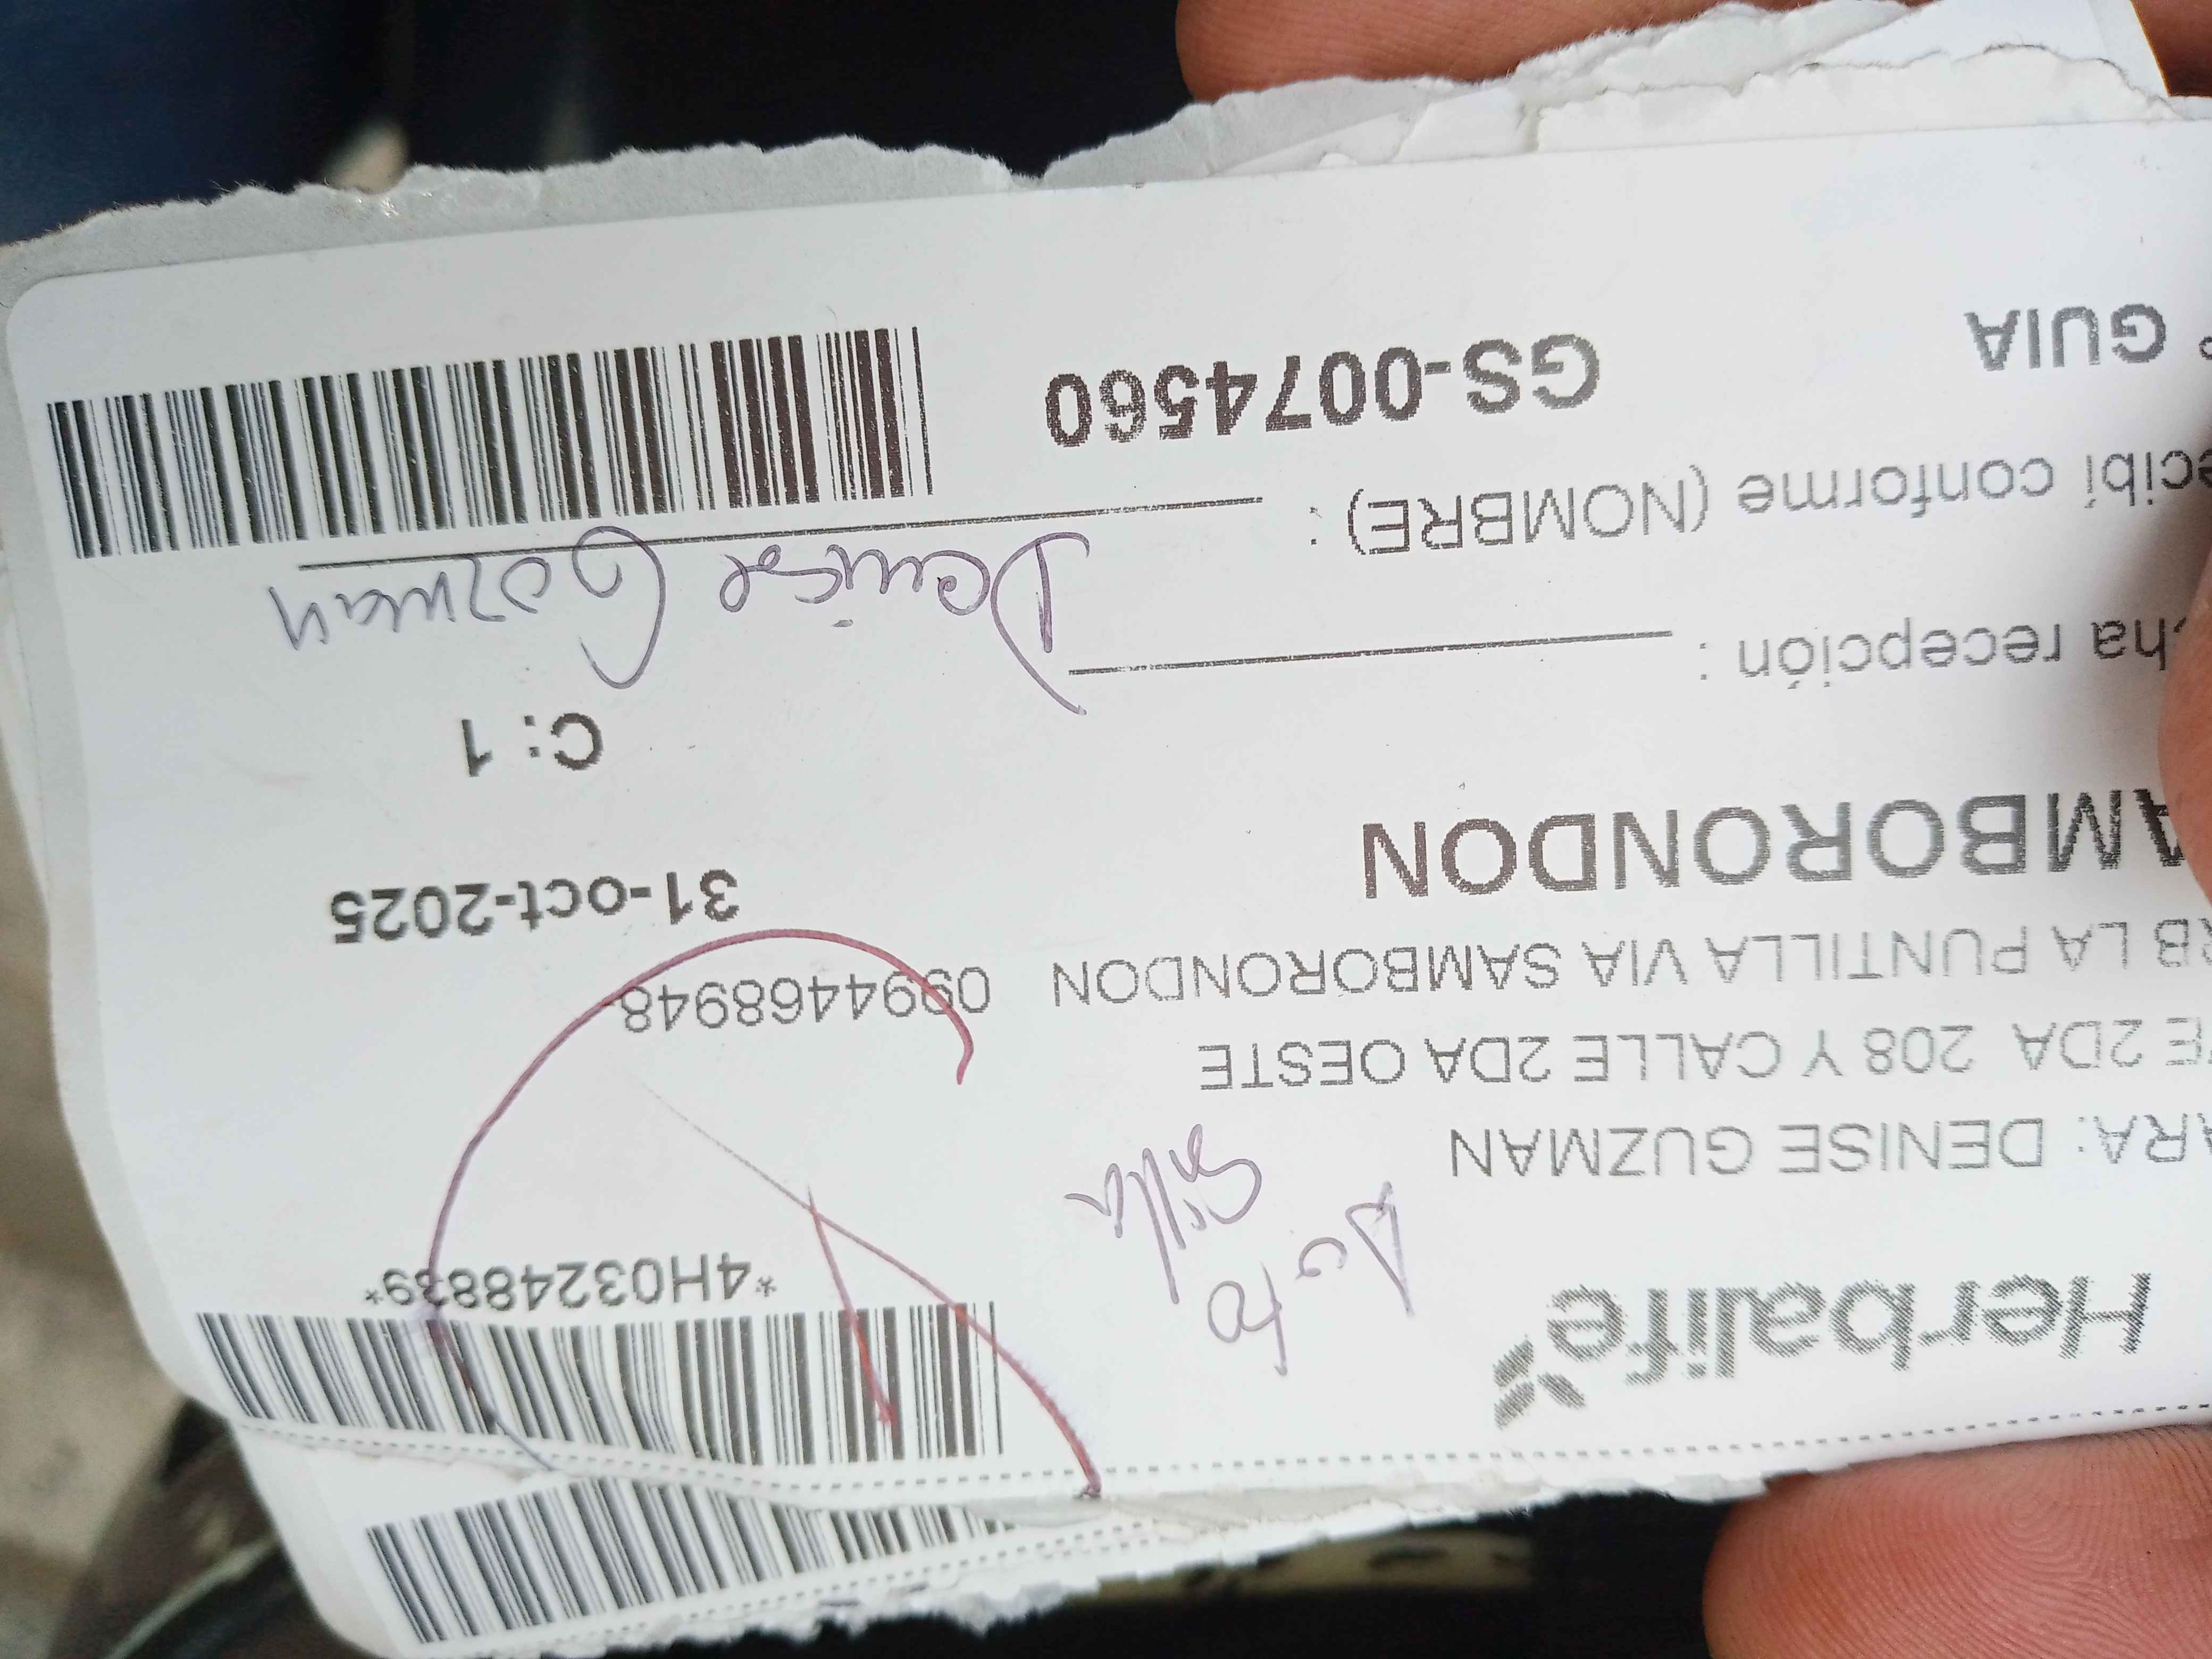 Herbalife
*4H03248839*
ARA: DENISE GUZMAN
E 2DA 208 Y CALLE 2DA OESTE
RB LA PUNTILLA VIA SAMBORONDON 0994468948
AMBORONDON 31-oct-2025
C: 1
ha recepción :
Denisse Guzman
ecibí conforme (NOMBRE) :
GUIA GS-0074560